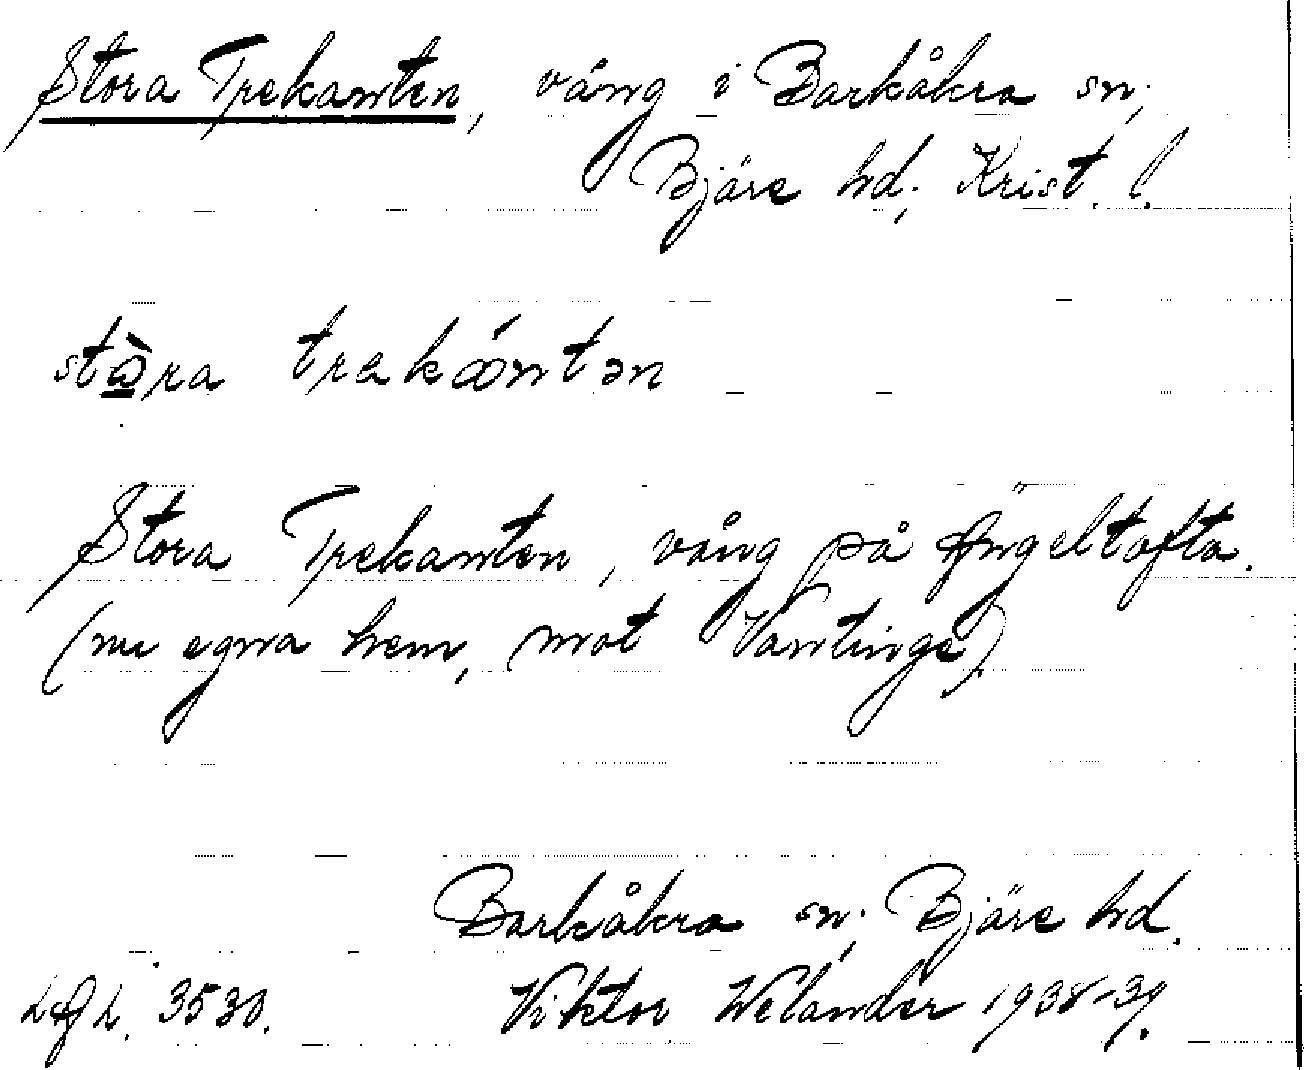 Stora Trekanten, vång i Barkåkra sn;
Bjäre hd; Krist. l.
stò̠ra trekántən
Stora Trekanten, vång på Ängeltofta.
(nu egna hem, mot Vantinge)
Barkåkra sn; Bjäre hd.
3530. Viktor Welander 1938-39.